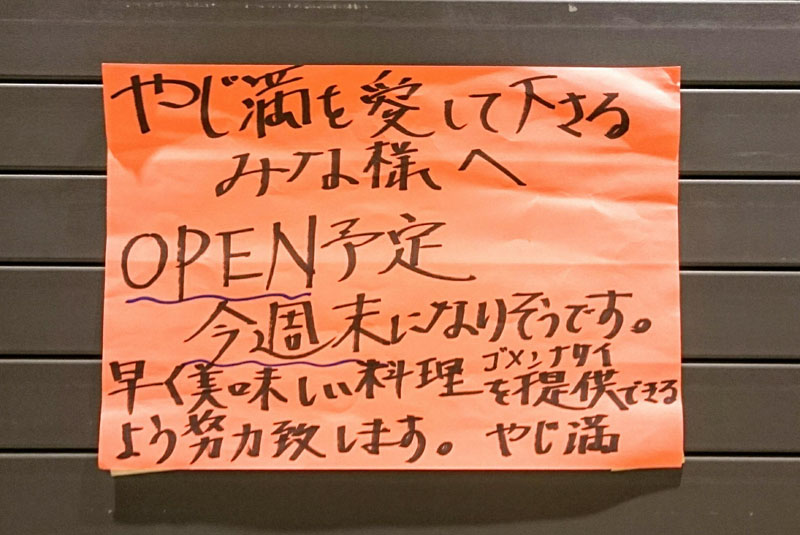 やじ満を愛して下さる
みな様へ
OPEN予定
今週末になりそうです。
ゴメンナサイ
早く美味しい料理を提供できる
よう努力致します。 やじ満